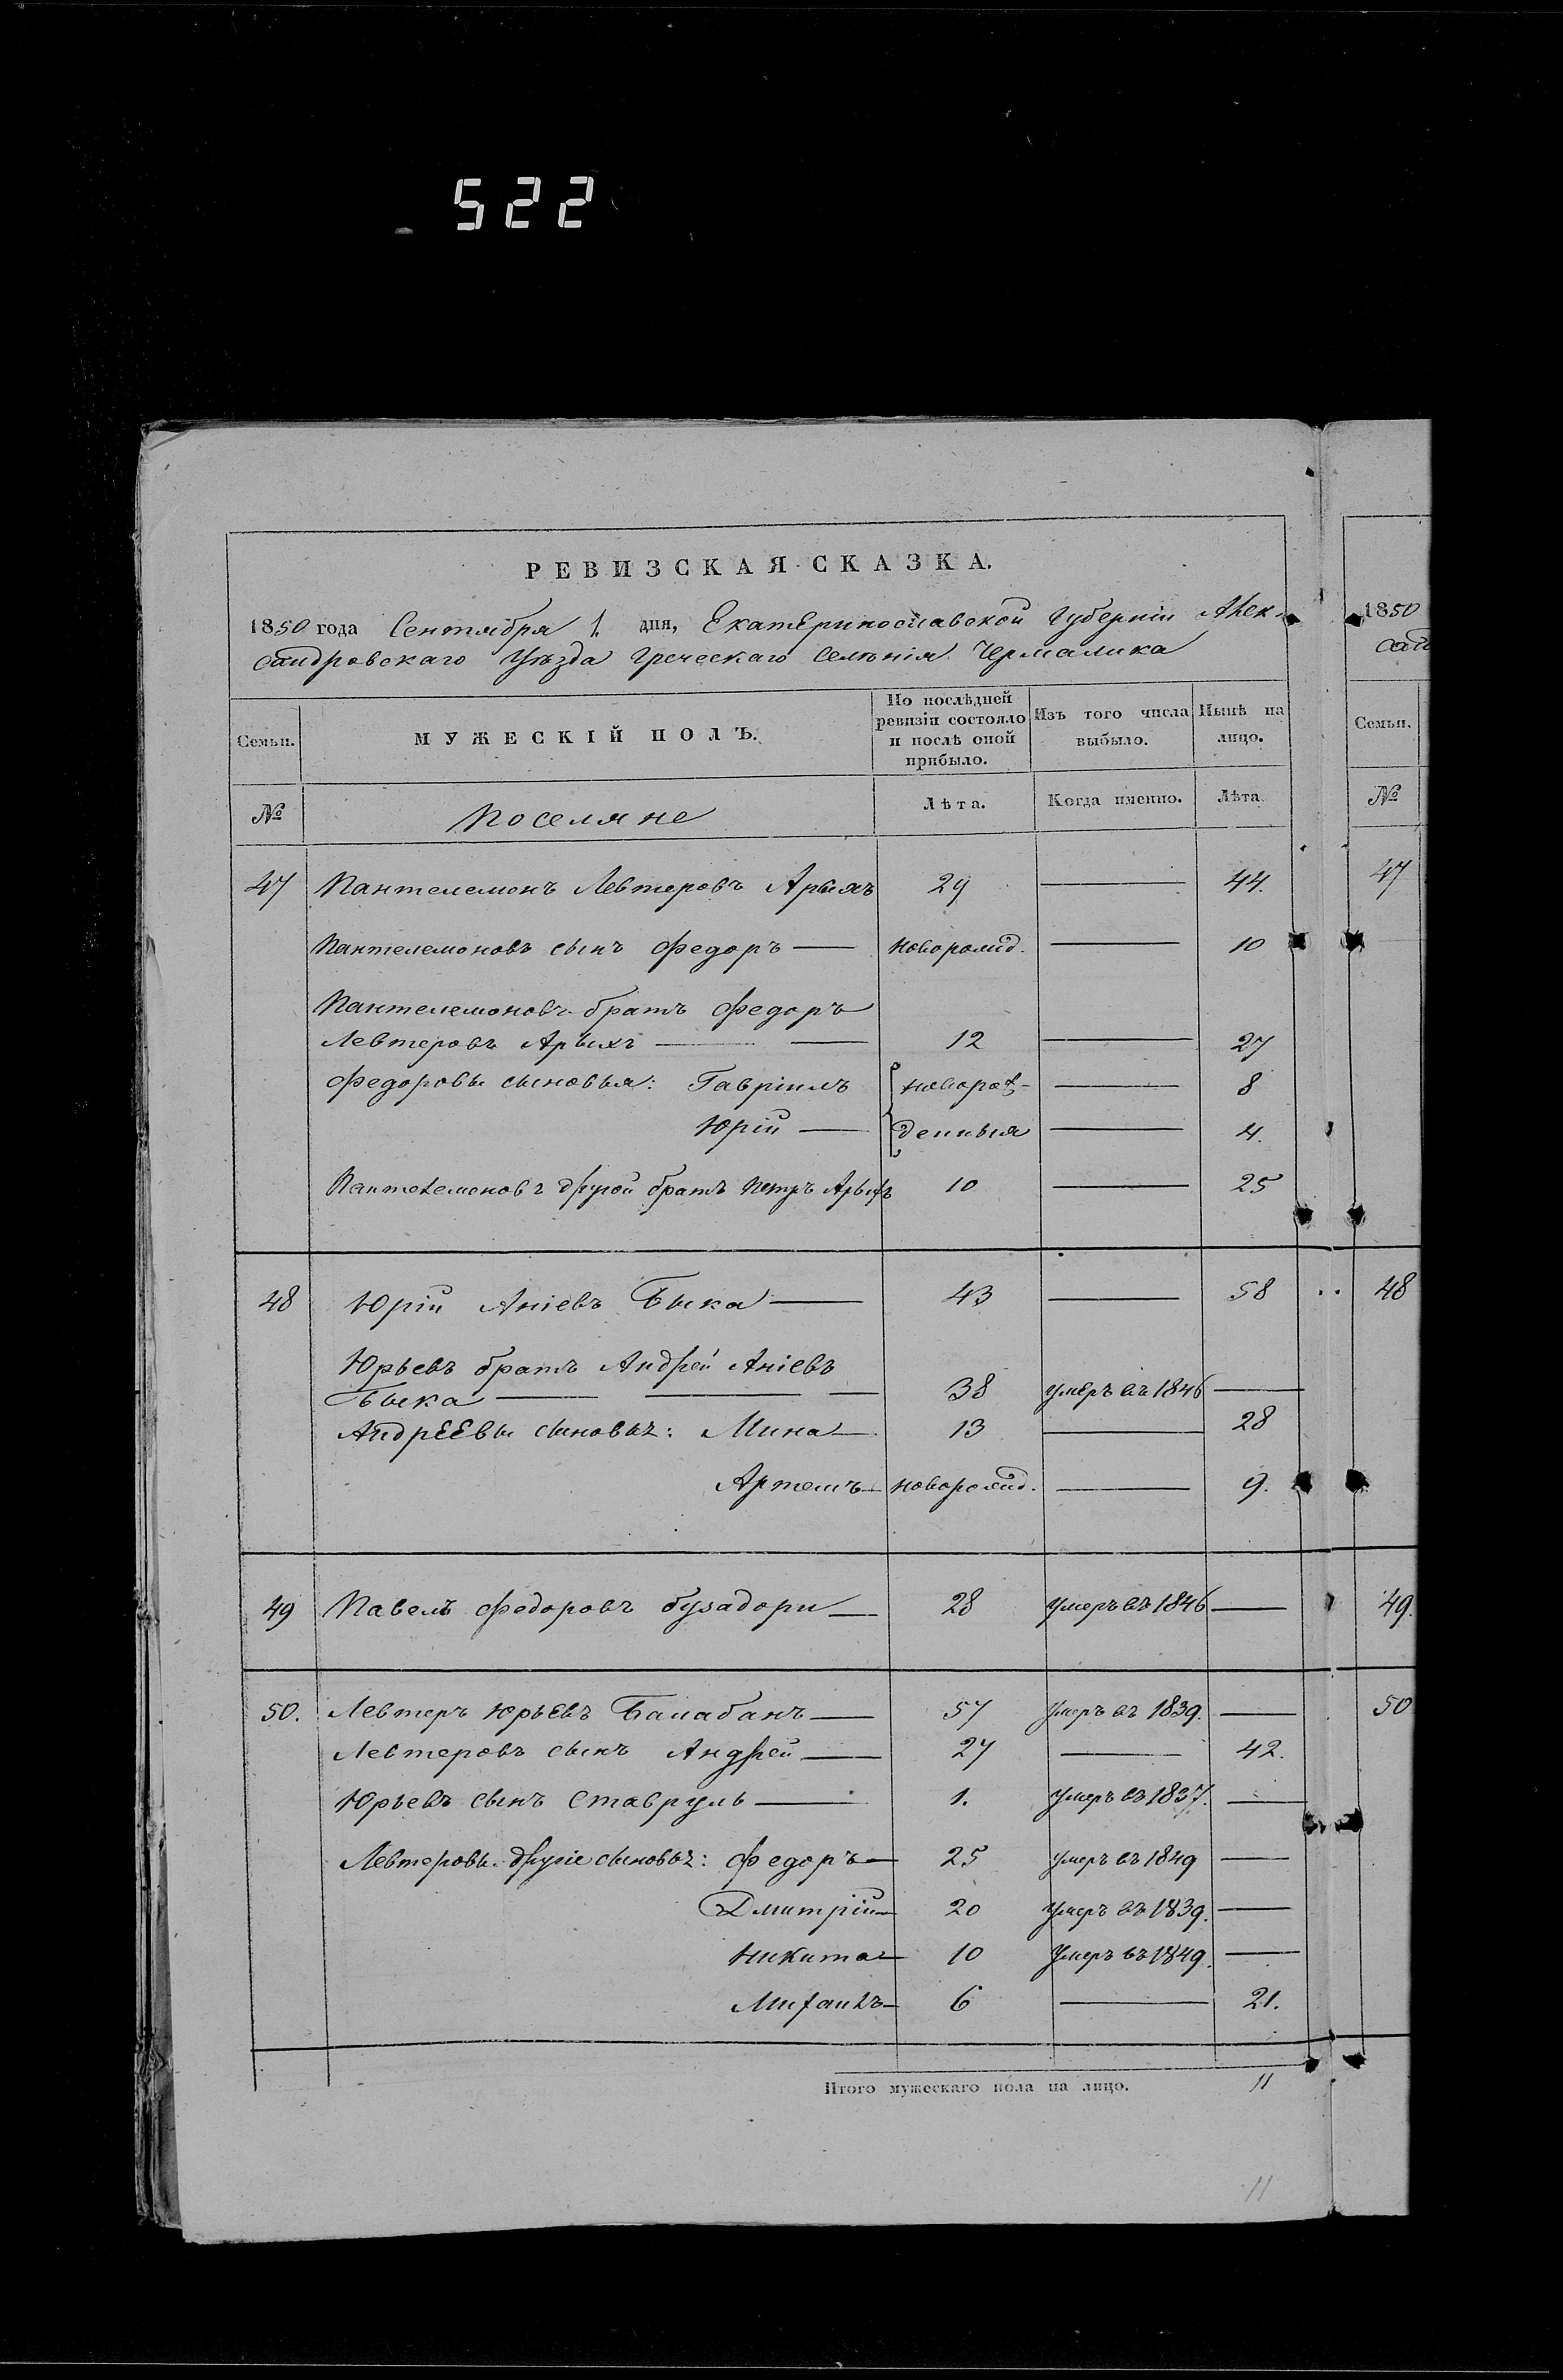 522
РЕВИЗСКАЯ СКАЗКА.
1850 года Сентября 1. дня, Екатеринославской Губерніи Алек-
сандровскаго Уѣзда Греческаго Селѣнія Чермалика
Семьи. МУЖЕСКІЙ ПОЛЪ. По послѣдней ревизіи состояло и послѣ оной прибыло. Изъ того числа выбыло. Нынѣ на лицо.
№ Поселяне Лѣта. Когда именно. Лѣта.
47 Пантелемонъ Левтеровъ Арыхъ 29 — 44.
Пантелемоновъ сынъ Федоръ — новорожд. — 10
Пантелемоновъ братъ Федоръ
Левтеровъ Арыхъ — — 12 — 27
Федоровы сыновья: Гавріилъ новорож- — 8
Юрій — денныя — 4.
Пантелемоновъ другой братъ Петръ Арыхъ 10 — 25
48 Юрій Аніевъ Быка — 43 — 58
Юрьевъ братъ Андрей Аніевъ
Быка — — — 38 умеръ въ 1846 —
Андреевы сыновьѣ: Мина — 13 — 28
Артемъ — новорожд. — 9.
49 Павелъ Федоровъ бузадори — 28 умеръ въ 1846 —
50. Левтеръ Юрьевъ Балабанъ — 57 умеръ въ 1839. —
Левтеровъ сынъ Андрей — 27 — 42.
Юрьевъ сынъ Ставруль — 1. умеръ въ 1837. —
Левтеровы другіе сыновьѣ: Федоръ — 25 умеръ въ 1849 —
Дмитрій — 20 умеръ въ 1839. —
Никита — 10 умеръ въ 1849. —
Михаилъ — 6 — 21.
Итого мужескаго пола на лицо. 11
11
1850
сан
Семьи.
№
47
48
49.
50